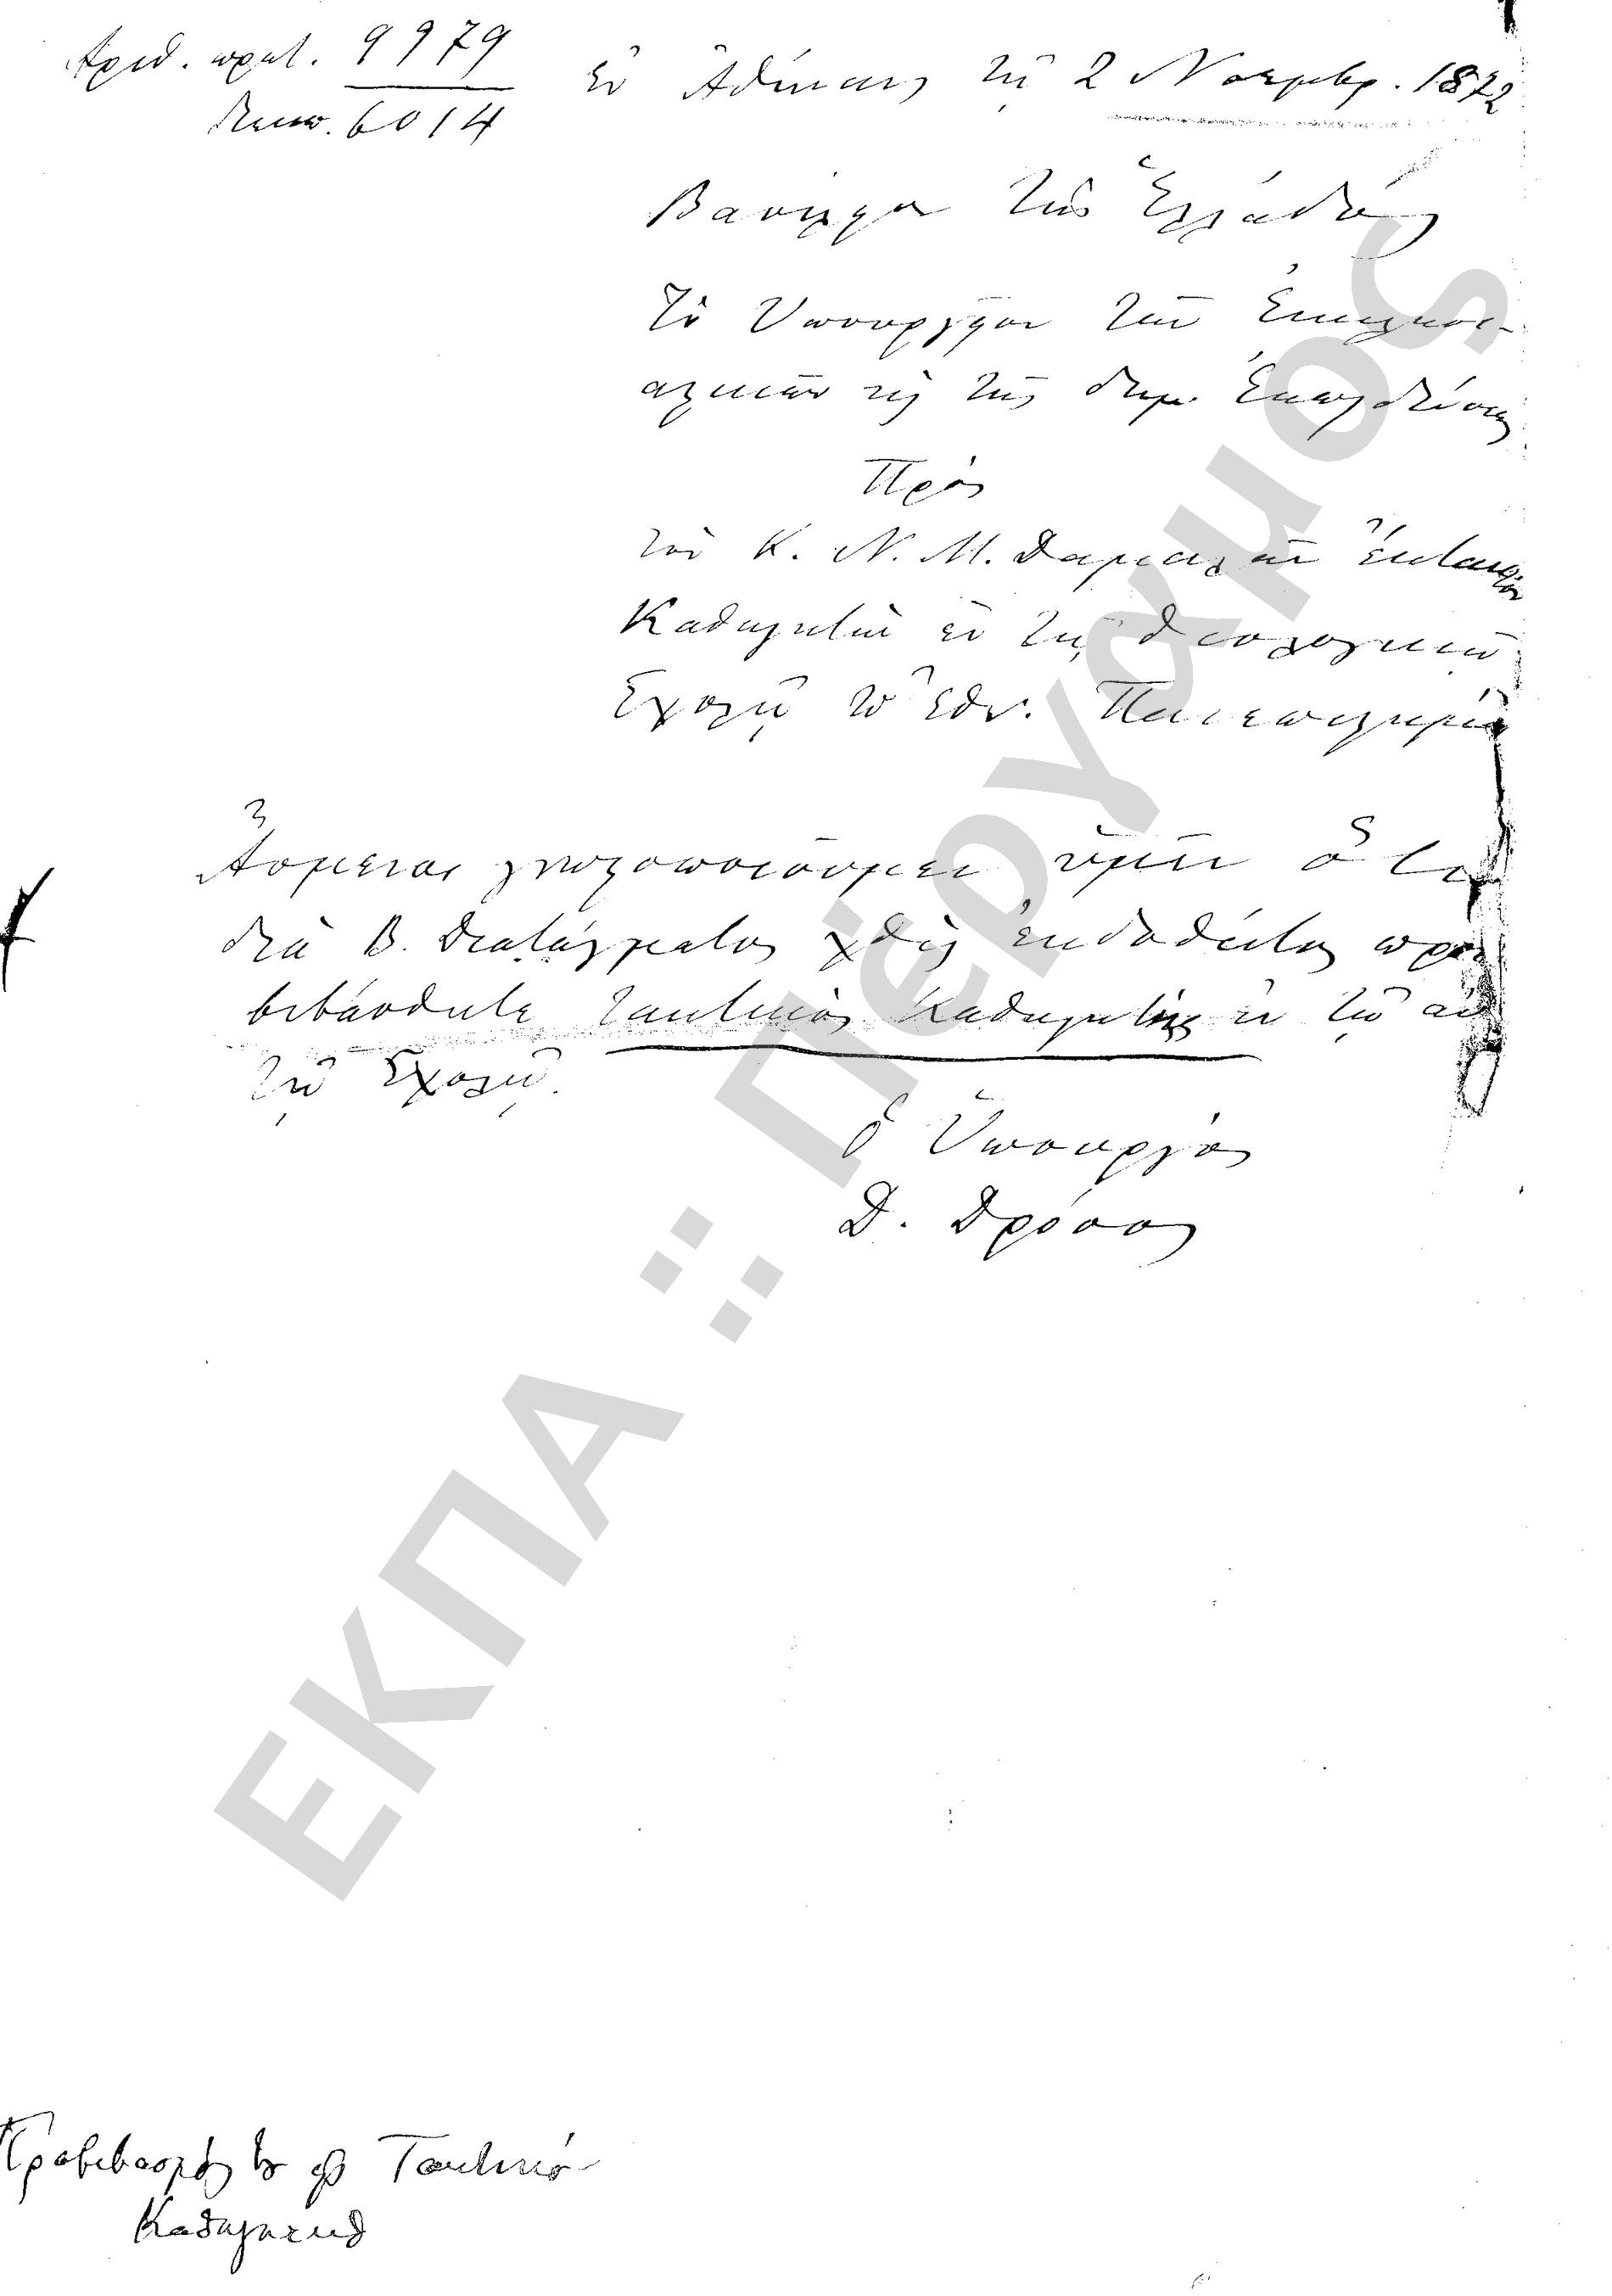 Ἀριθ. πρωτ. 9979
Διεκπ. 6014
Ἐν Ἀθήναις τῇ 2 Νοεμβρ. 1872
Βασίλειον τῆς Ἑλλάδος
Τὸ Ὑπουργεῖον τῶν Ἐκκλησι-
αστικῶν καὶ τῆς δημ. Ἐκπαιδεύσεως
Πρὸς
τὸν Κ. Ν. Μ. Δαμαλᾶν ἔκτακτον
Καθηγητὴν ἐν τῇ Θεολογικῇ
Σχολῇ τοῦ Ἐθν. Πανεπιστημίου
Ἀσμένως γνωστοποιοῦμεν ὑμῖν ὅτι
διὰ Β. Διατάγματος χθὲς ἐκδοθέντος προε-
βιβάσθητε τακτικὸς Καθηγητὴς ἐν τῇ αὐ
τῇ Σχολῇ.
Ὁ Ὑπουργὸς
Δ. Δρόσος
Προβιβασμός
Τακτικὸ
Καθηγητοῦ
ΕΚΠΑ :: Πέργαμος